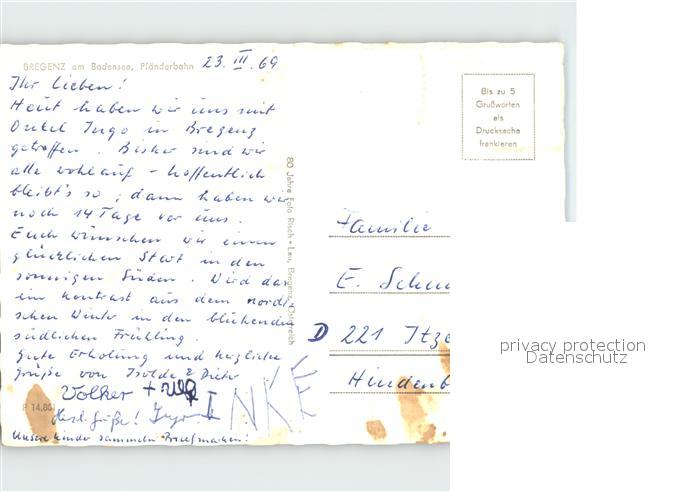 BREGENZ am Bodensee, Pfänderbahn
23. III. 69
Ihr lieben!
Heut haben wir uns mit
Onkel Ingo in Bregenz
getroffen. Bisher sind wir
alle wohlauf - hoffentlich
bleibt's so; dann haben wir
noch 14 Tage vor uns.
Euch wünschen wir einen
glücklichen Start in den
sonnigen Süden. Wird das
ein Kontrast aus dem nordi-
schen Winter in den blühenden
südlichen Frühling.
Gute Erholung und herzliche
Grüße von Isolde & Dieter
Volker +
Herzl. Grüße! Ingo
INKE
Unsere Kinder sammeln Briefmarken!
P 14.80
80 Jahre Foto Risch-Lau, Bregenz, Österreich
Bis zu 5
Grußworten
als
Drucksache
frankieren
Familie
E. Schm
D 221 Itze
Hindenb
privacy protection
Datenschutz